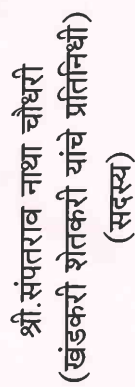 श्री.संपतराव नाथा चौधरी
(खंडकरी शेतकरी यांचे प्रतिनिधी)
(सदस्य)